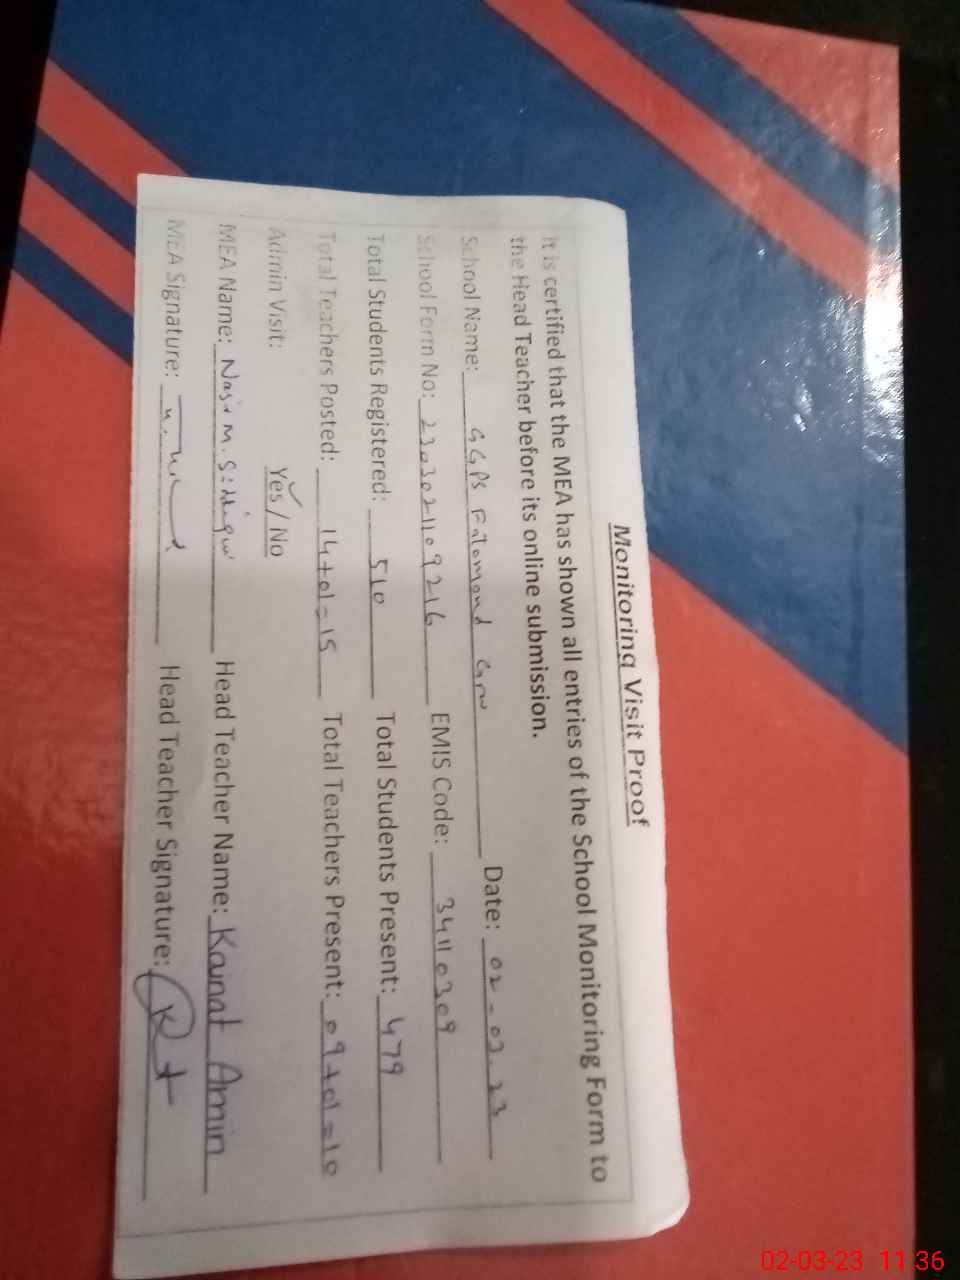 Monitoring Visit Proof
It is certified that the MEA has shown all entries of the School Monitoring Form to
the Head Teacher before its online submission.
School Name: GGPS Fatomand Grw Date: 02-03-23
School Form No: 2303021109216 EMIS Code: 34110309
Total Students Registered: 510 Total Students Present: 479
Total Teachers Posted: 14+01=15 Total Teachers Present: 09+01=10
Admin Visit: Yes / No
MEA Name: Nasir M. Siddiqui Head Teacher Name: Kainat Amin
MEA Signature: Head Teacher Signature:
02-03-23 11:36